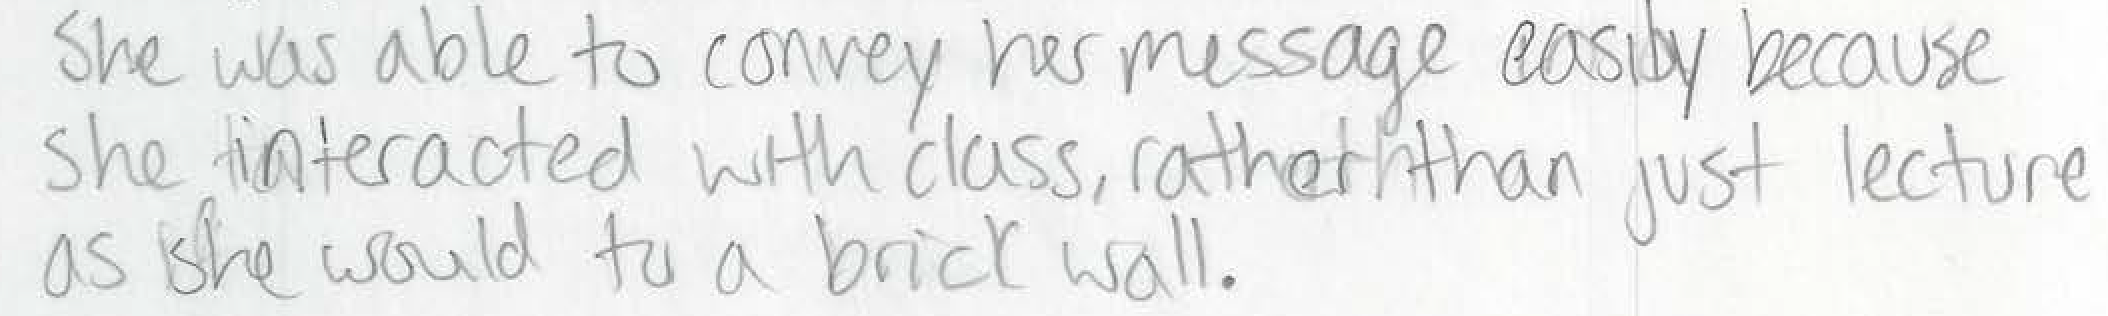 She was able to convey her message easily because
she interacted with class, rather than just lecture
as she would to a brick wall.